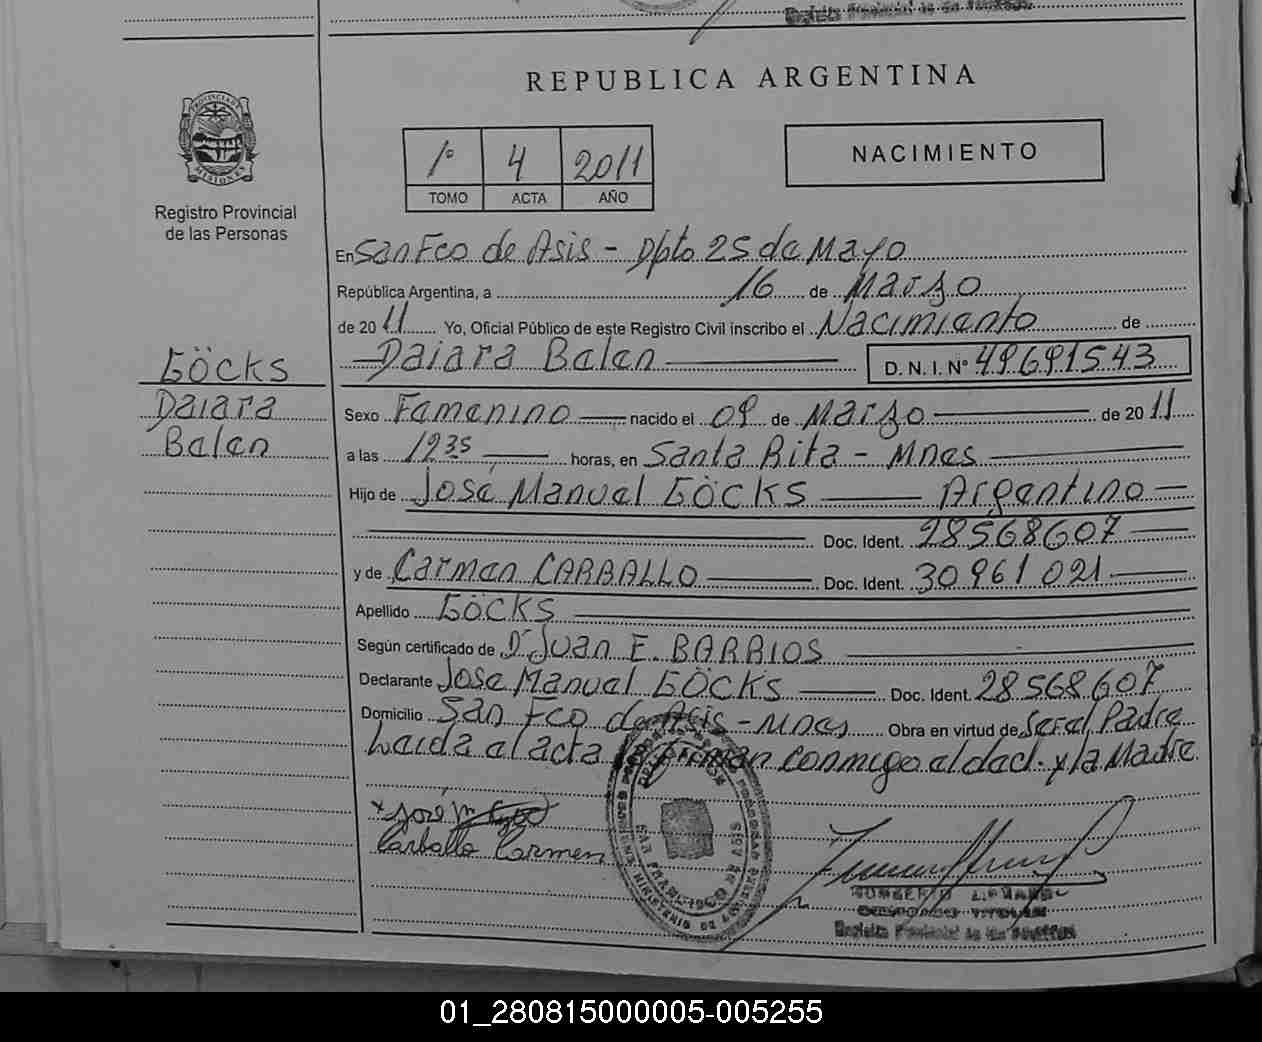 Registro Provincial de las Personas
REPUBLICA ARGENTINA
1º 4 2011
TOMO ACTA AÑO
NACIMIENTO
PROVINCIA DE
MISIONES
Registro Provincial
de las Personas
GÖCKS
Daiara
Belen
En San Fco de Asis - Dpto 25 de Mayo
República Argentina, a 16 de Marzo
de 2011 Yo, Oficial Público de este Registro Civil inscribo el Nacimiento de
Daiara Belen D. N. I. Nº 49691543
Sexo Femenino nacido el 09 de Marzo de 2011
a las 12 35 horas, en Santa Rita - Mnes
Hijo de José Manuel GÖCKS Argentino
Doc. Ident. 28568607
y de Carmen CARBALLO Doc. Ident. 30961021
Apellido GÖCKS
Según certificado de Dr Juan E. BARRIOS
Declarante Jose Manuel GÖCKS Doc. Ident. 28568607
Domicilio San Fco de Asis - Mnes Obra en virtud de Ser el Padre
Leida el acta la firman conmigo el decl. y la Madre
x José M
Carballo Carmen
SAN FRANCISCO DE ASIS
MINISTERIO DE
Registro Provincial de las Personas
01_280815000005-005255